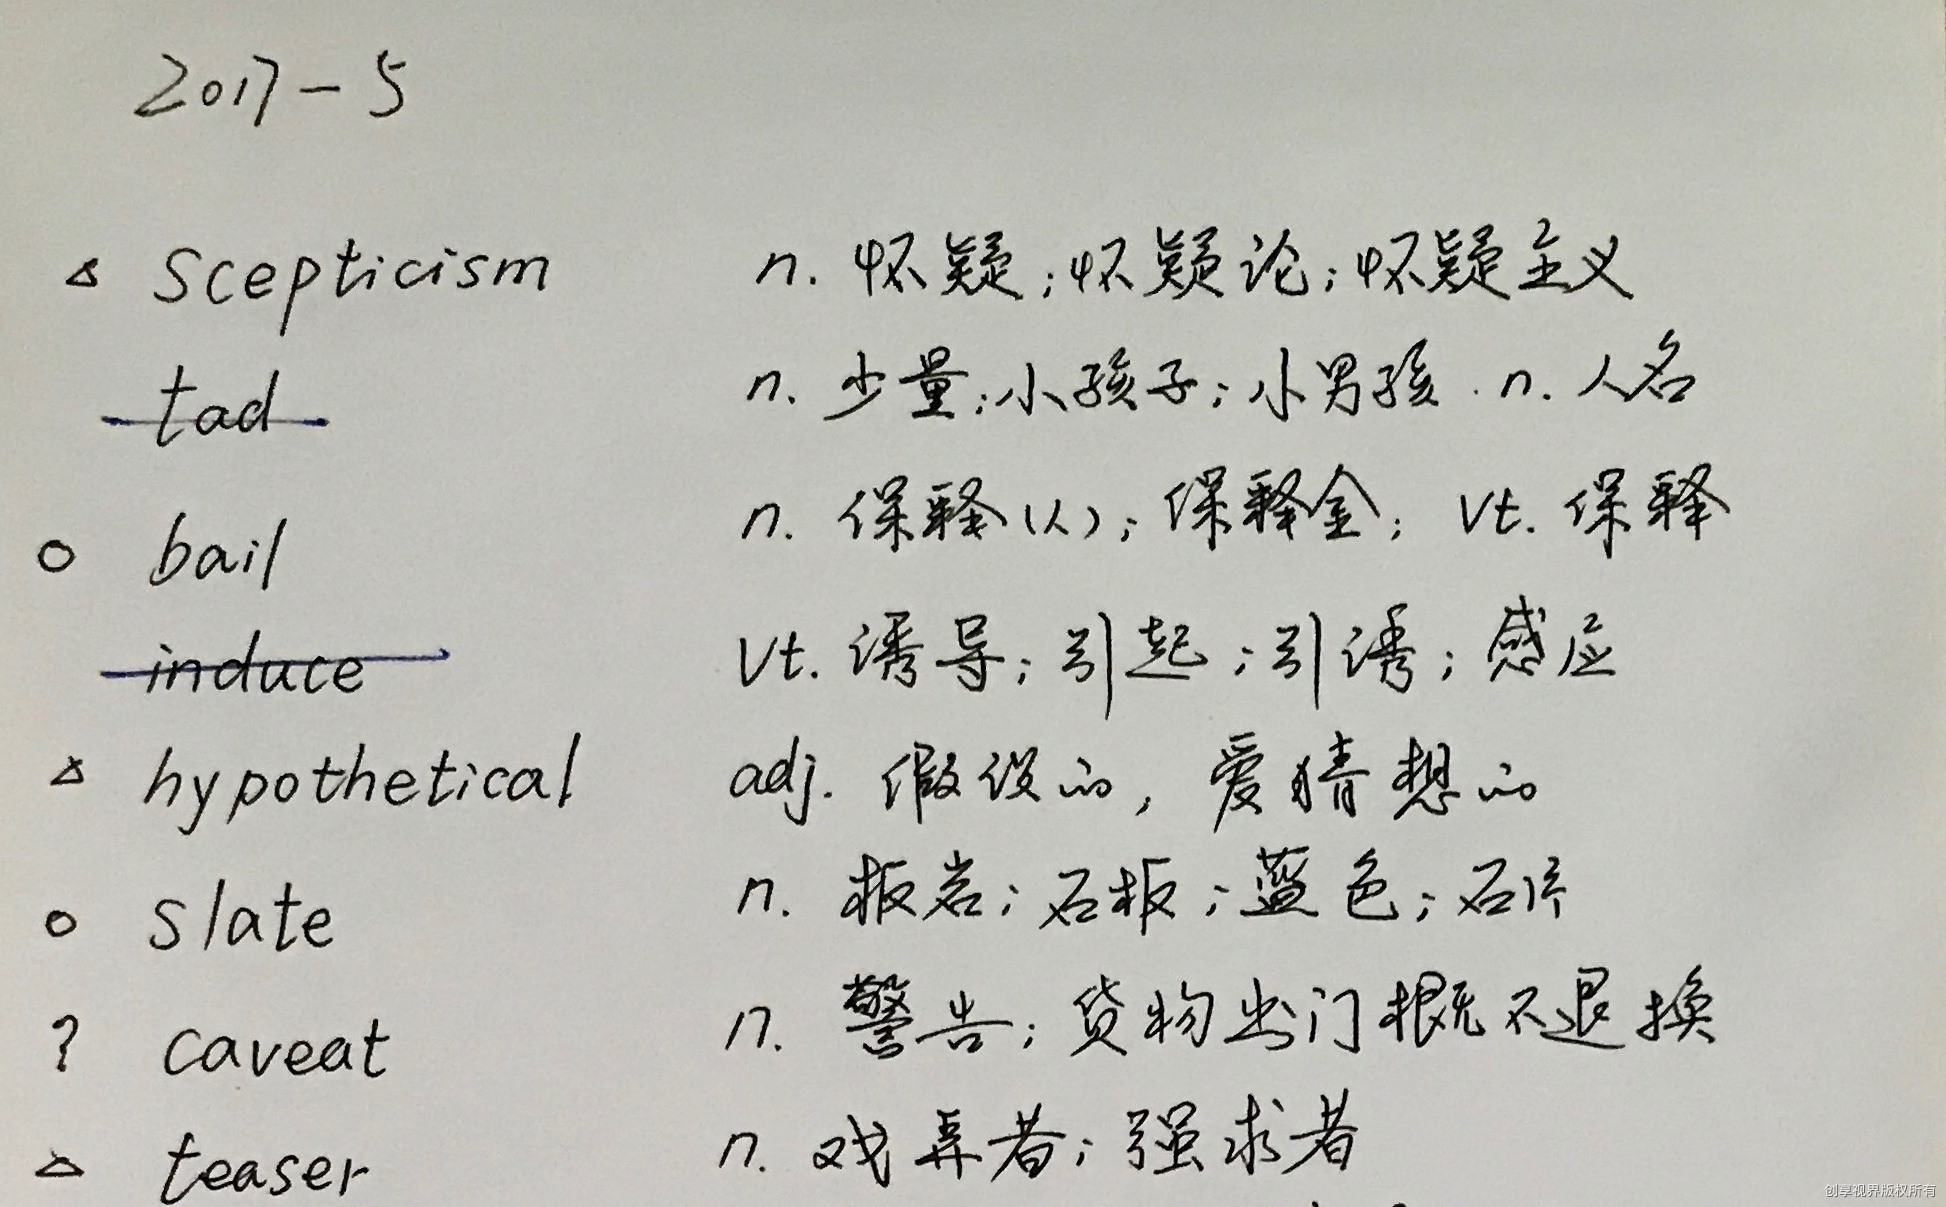 2017-5
△ scepticism n. 怀疑;怀疑论;怀疑主义
tad n. 少量;小孩子;小男孩. n. 人名
○ bail n. 保释(人);保释金; vt. 保释
induce vt. 诱导;引起;引诱;感应
△ hypothetical adj. 假设的,爱猜想的
○ slate n. 板岩;石板;蓝色;石片
? caveat n. 警告;货物出门概不退换
△ teaser n. 戏弄者;强求者
创享视界版权所有